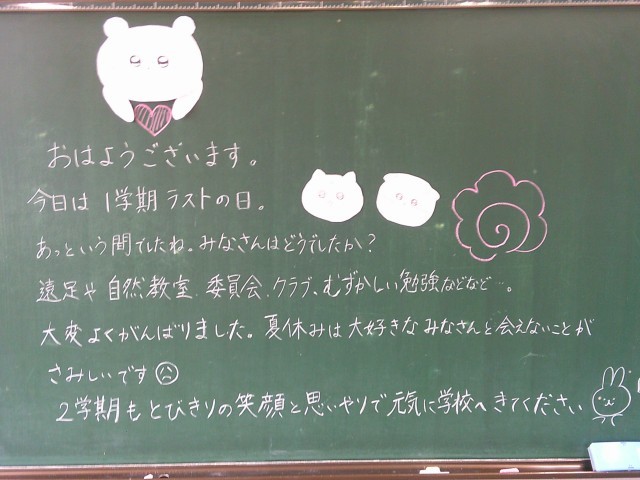 おはようございます。
今日は1学期ラストの日。
あっという間でしたね。みなさんはどうでしたか?
遠足や自然教室、委員会、クラブ、むずかしい勉強などなど…。
大変よくがんばりました。夏休みは大好きなみなさんと会えないことが
さみしいです
2学期もとびきりの笑顔と思いやりで元気に学校へきてください